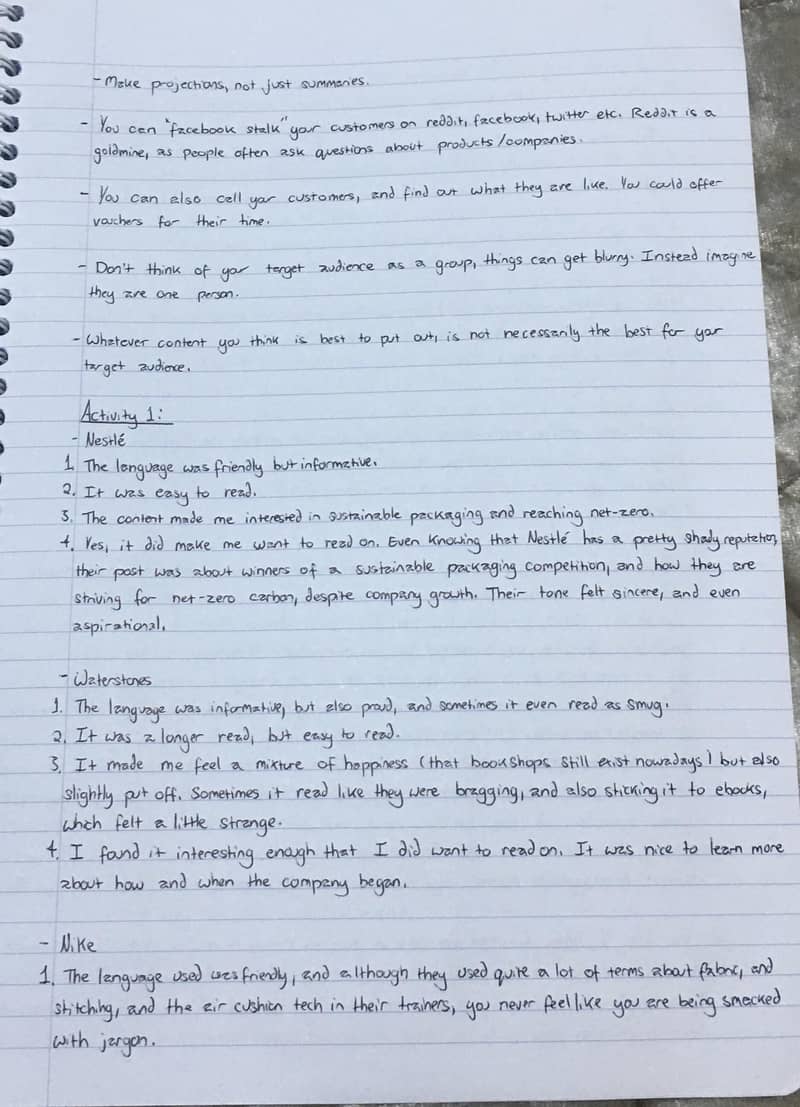 - Make projections, not just summaries.
- You can "facebook stalk" your customers on reddit, facebook, twitter etc. Reddit is a
goldmine, as people often ask questions about products/companies.
- You can also call your customers, and find out what they are like. You could offer
vouchers for their time.
- Don't think of your target audience as a group, things can get blurry. Instead imagine
they are one person.
- Whatever content you think is best to put out, is not necessarily the best for your
target audience.
Activity 1:
- Nestlé
1. The language was friendly but informative.
2. It was easy to read.
3. The content made me interested in sustainable packaging and reaching net-zero.
4. Yes, it did make me want to read on. Even knowing that Nestlé has a pretty shady reputation,
their post was about winners of a sustainable packaging competition, and how they are
striving for net-zero carbon, despite company growth. Their tone felt sincere, and even
aspirational.
- Waterstones
1. The language was informative, but also proud, and sometimes it even read as smug.
2. It was a longer read, but easy to read.
3. It made me feel a mixture of happiness (that bookshops still exist nowadays) but also
slightly put off. Sometimes it read like they were bragging, and also sticking it to ebooks,
which felt a little strange.
4. I found it interesting enough that I did want to read on. It was nice to learn more
about how and when the company began.
- Nike
1. The language used was friendly, and although they used quite a lot of terms about fabric, and
stitching, and the air cushion tech in their trainers, you never feel like you are being smacked
with jargon.